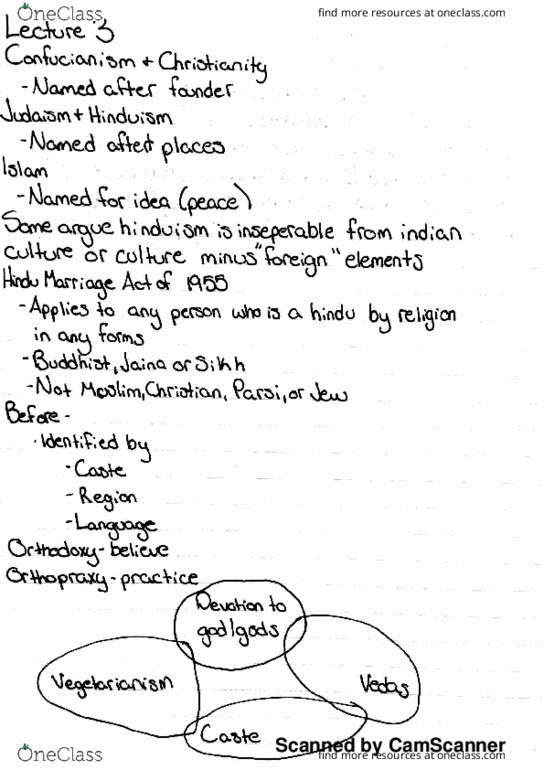 OneClass
find more resources at oneclass.com
Lecture 3
Confucianism + Christianity
- Named after founder
Judaism + Hinduism
- Named after places
Islam
- Named for idea (peace)
Some argue hinduism is inseperable from indian
culture or culture minus "foreign" elements
Hindu Marriage Act of 1955
- Applies to any person who is a hindu by religion
in any forms
- Buddhist, Jaina or Sikh
- Not Muslim, Christian, Parsi, or Jew
Before -
· Identified by
- Caste
- Region
- Language
Orthodoxy - believe
Orthopraxy - practice
Devotion to
god/gods
Vegetarianism
Vedas
Caste
Scanned by CamScanner
OneClass
find more resources at oneclass.com